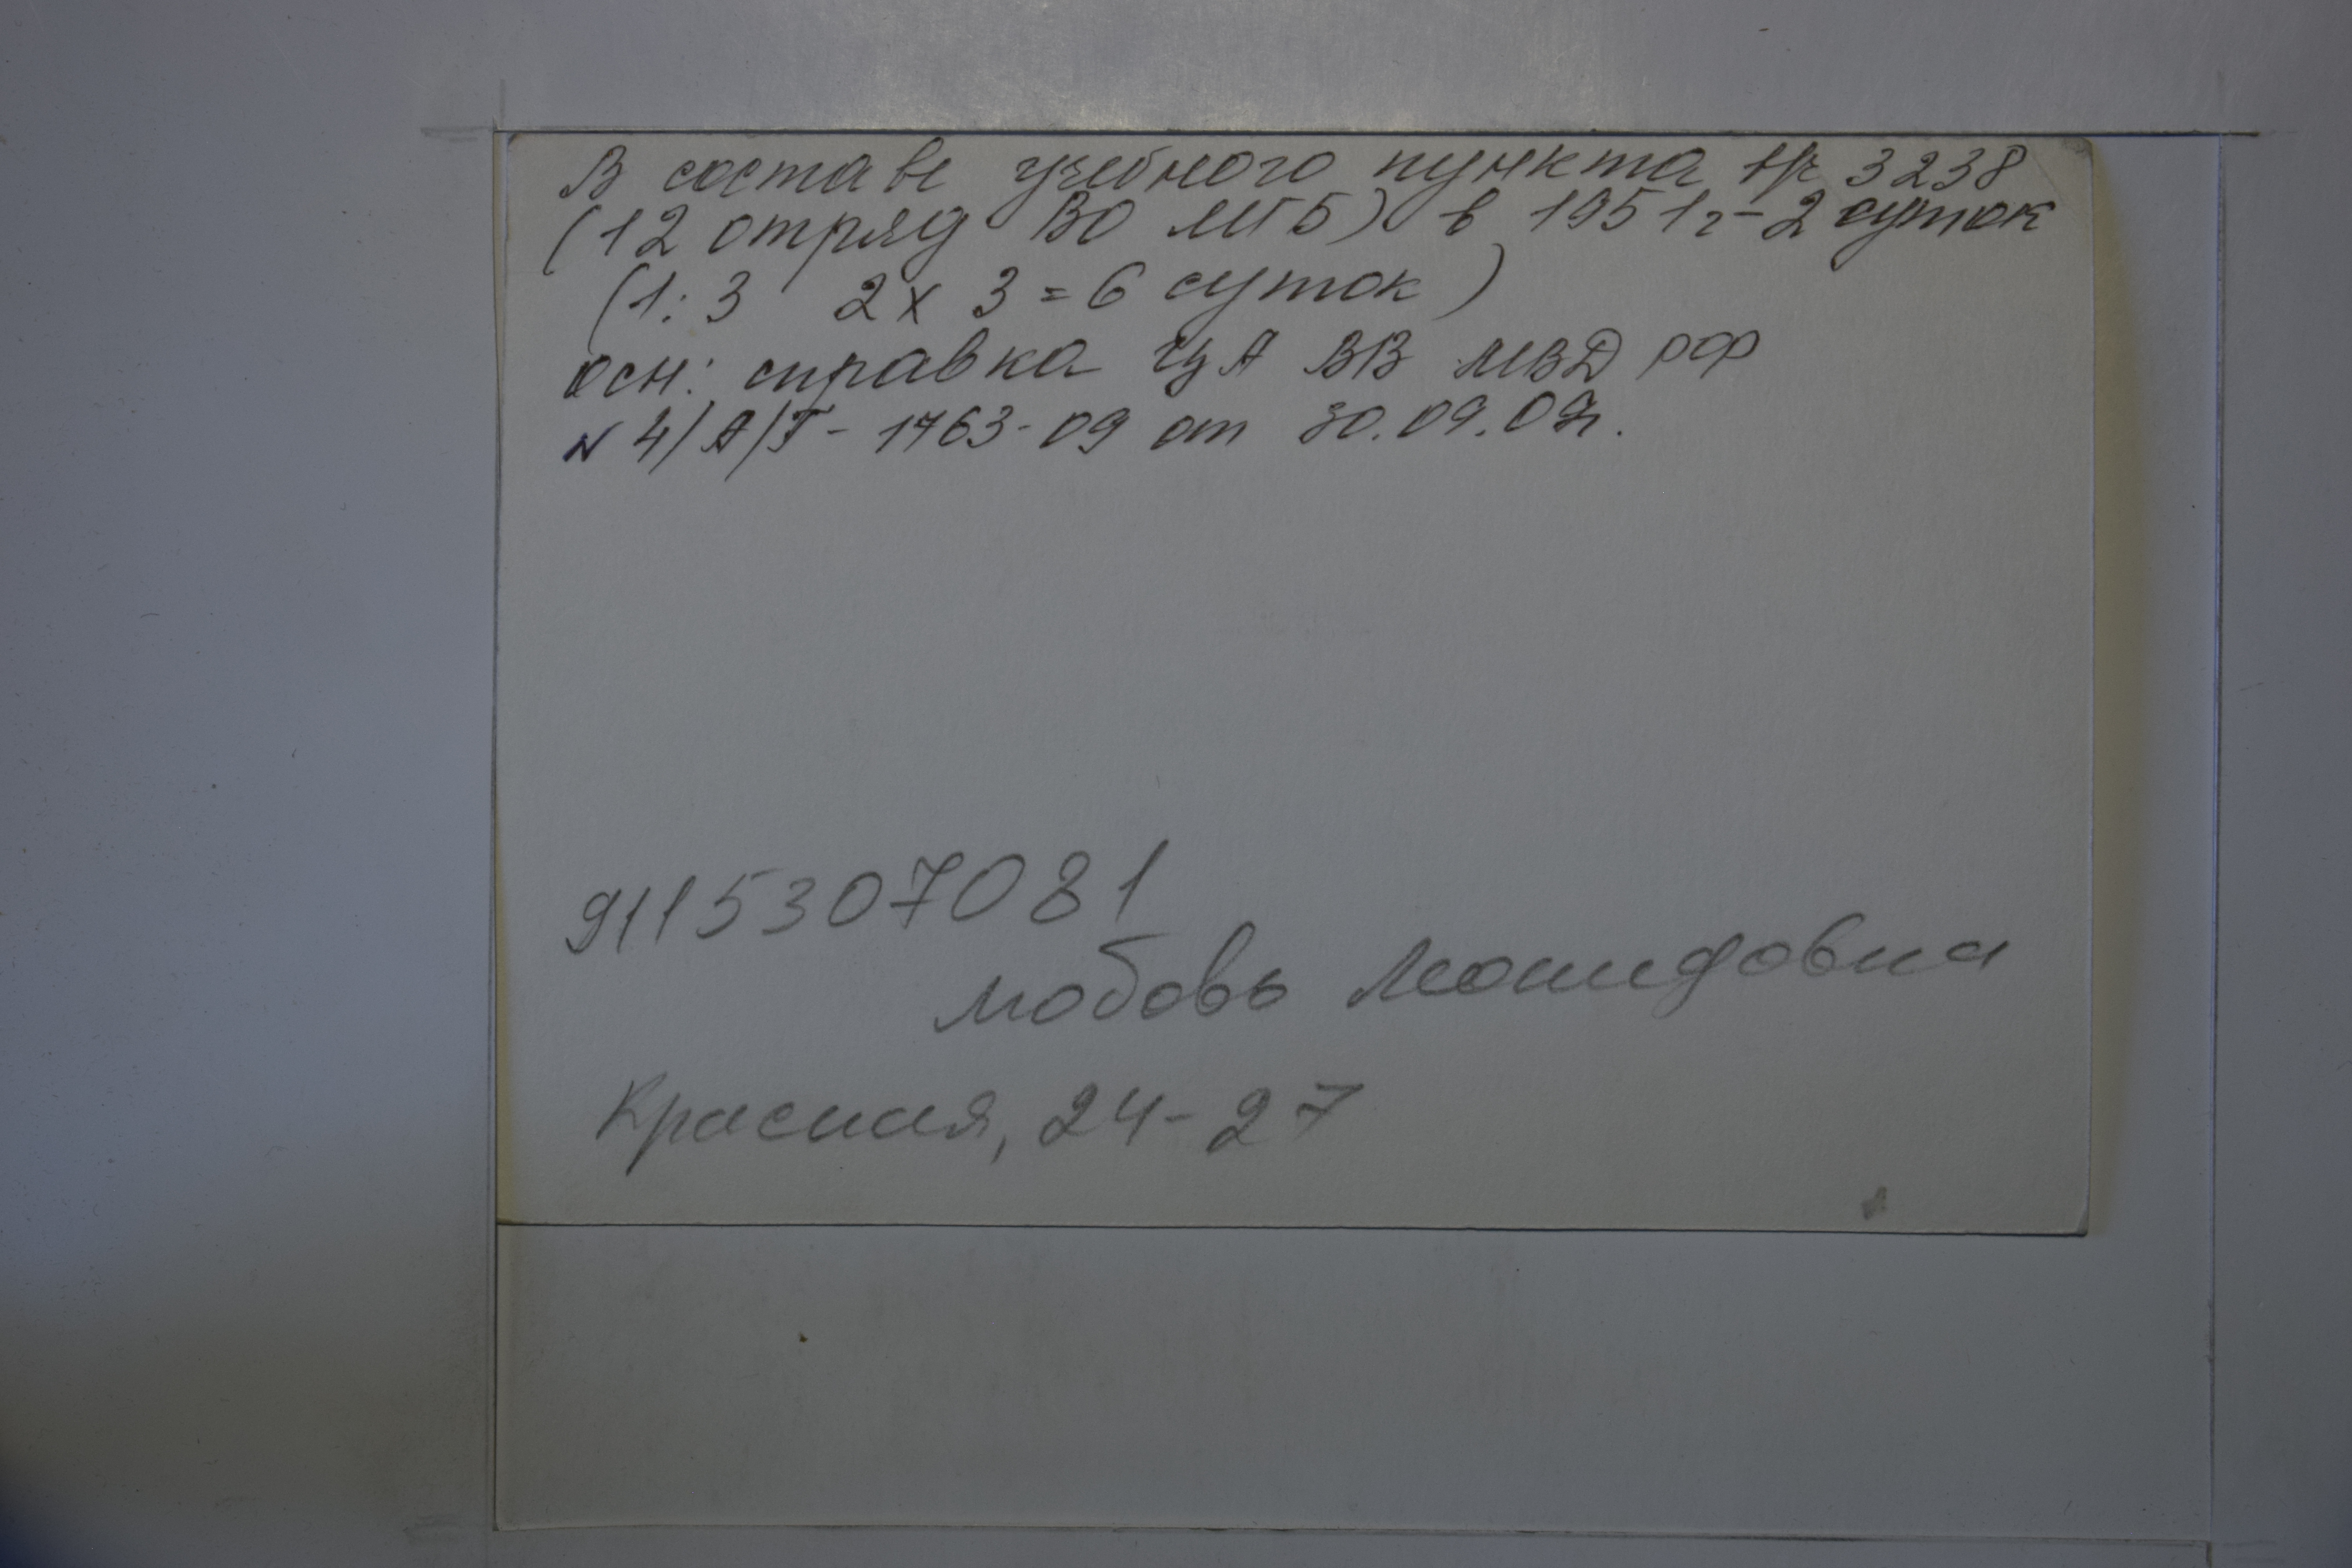 В составе учебного пункта в/ч 3238
(12 отряд ВО МГБ) в 1951г - 2 суток
(1:3 2 х 3 = 6 суток)
осн: справка ЦА ВВ МВД РФ
N 4/А/Т - 1763-09 от 30.09.09г.
9115307081
Любовь Леонидовна
Красная, 24-27